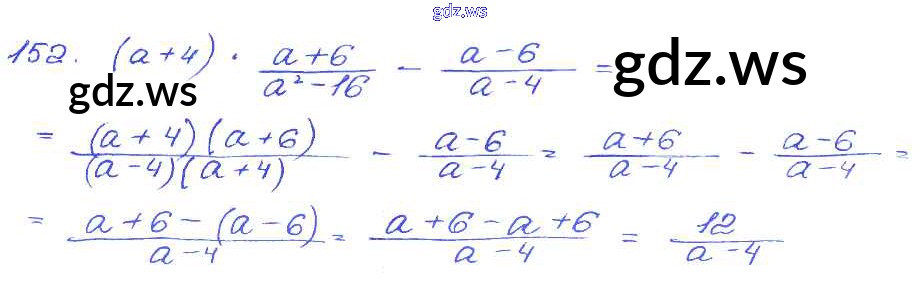 gdz.ws
152. (a+4) · \frac{a+6}{a²-16} - \frac{a-6}{a-4} =
gdz.ws
gdz.ws
= \frac{(a+4)(a+6)}{(a-4)(a+4)} - \frac{a-6}{a-4} = \frac{a+6}{a-4} - \frac{a-6}{a-4} =
= \frac{a+6-(a-6)}{a-4} = \frac{a+6-a+6}{a-4} = \frac{12}{a-4}